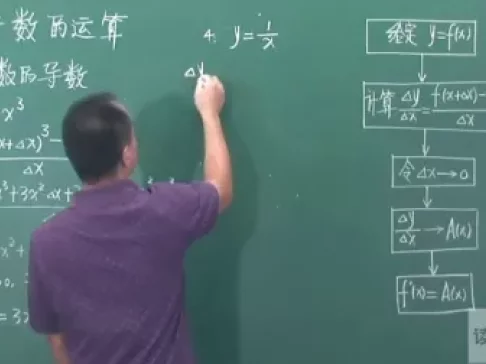 数的运算
数的导数
x³
x+Δx)³−
Δx
³+3x²Δx+3
x²+
0,
=3x
4. y=1/x
Δy
给定 y=f(x)
计算 Δy/Δx=f(x+Δx)−/Δx
令 Δx→0
Δy/Δx→A(x)
f'(x)=A(x)